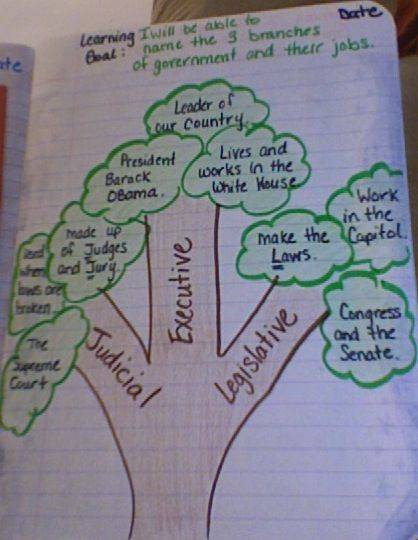 Date
Learning I will be able to
Goal: name the 3 branches
of government and their jobs.
ate
Leader of
our Country.
President
Barack
Obama.
Lives and
works in the
White House
made up
of Judges
and Jury.
when
laws are
broken
The
Supreme
Court
make the
Laws.
Work
in the
Capitol.
Congress
and the
Senate.
Judicial
Executive
Legislative